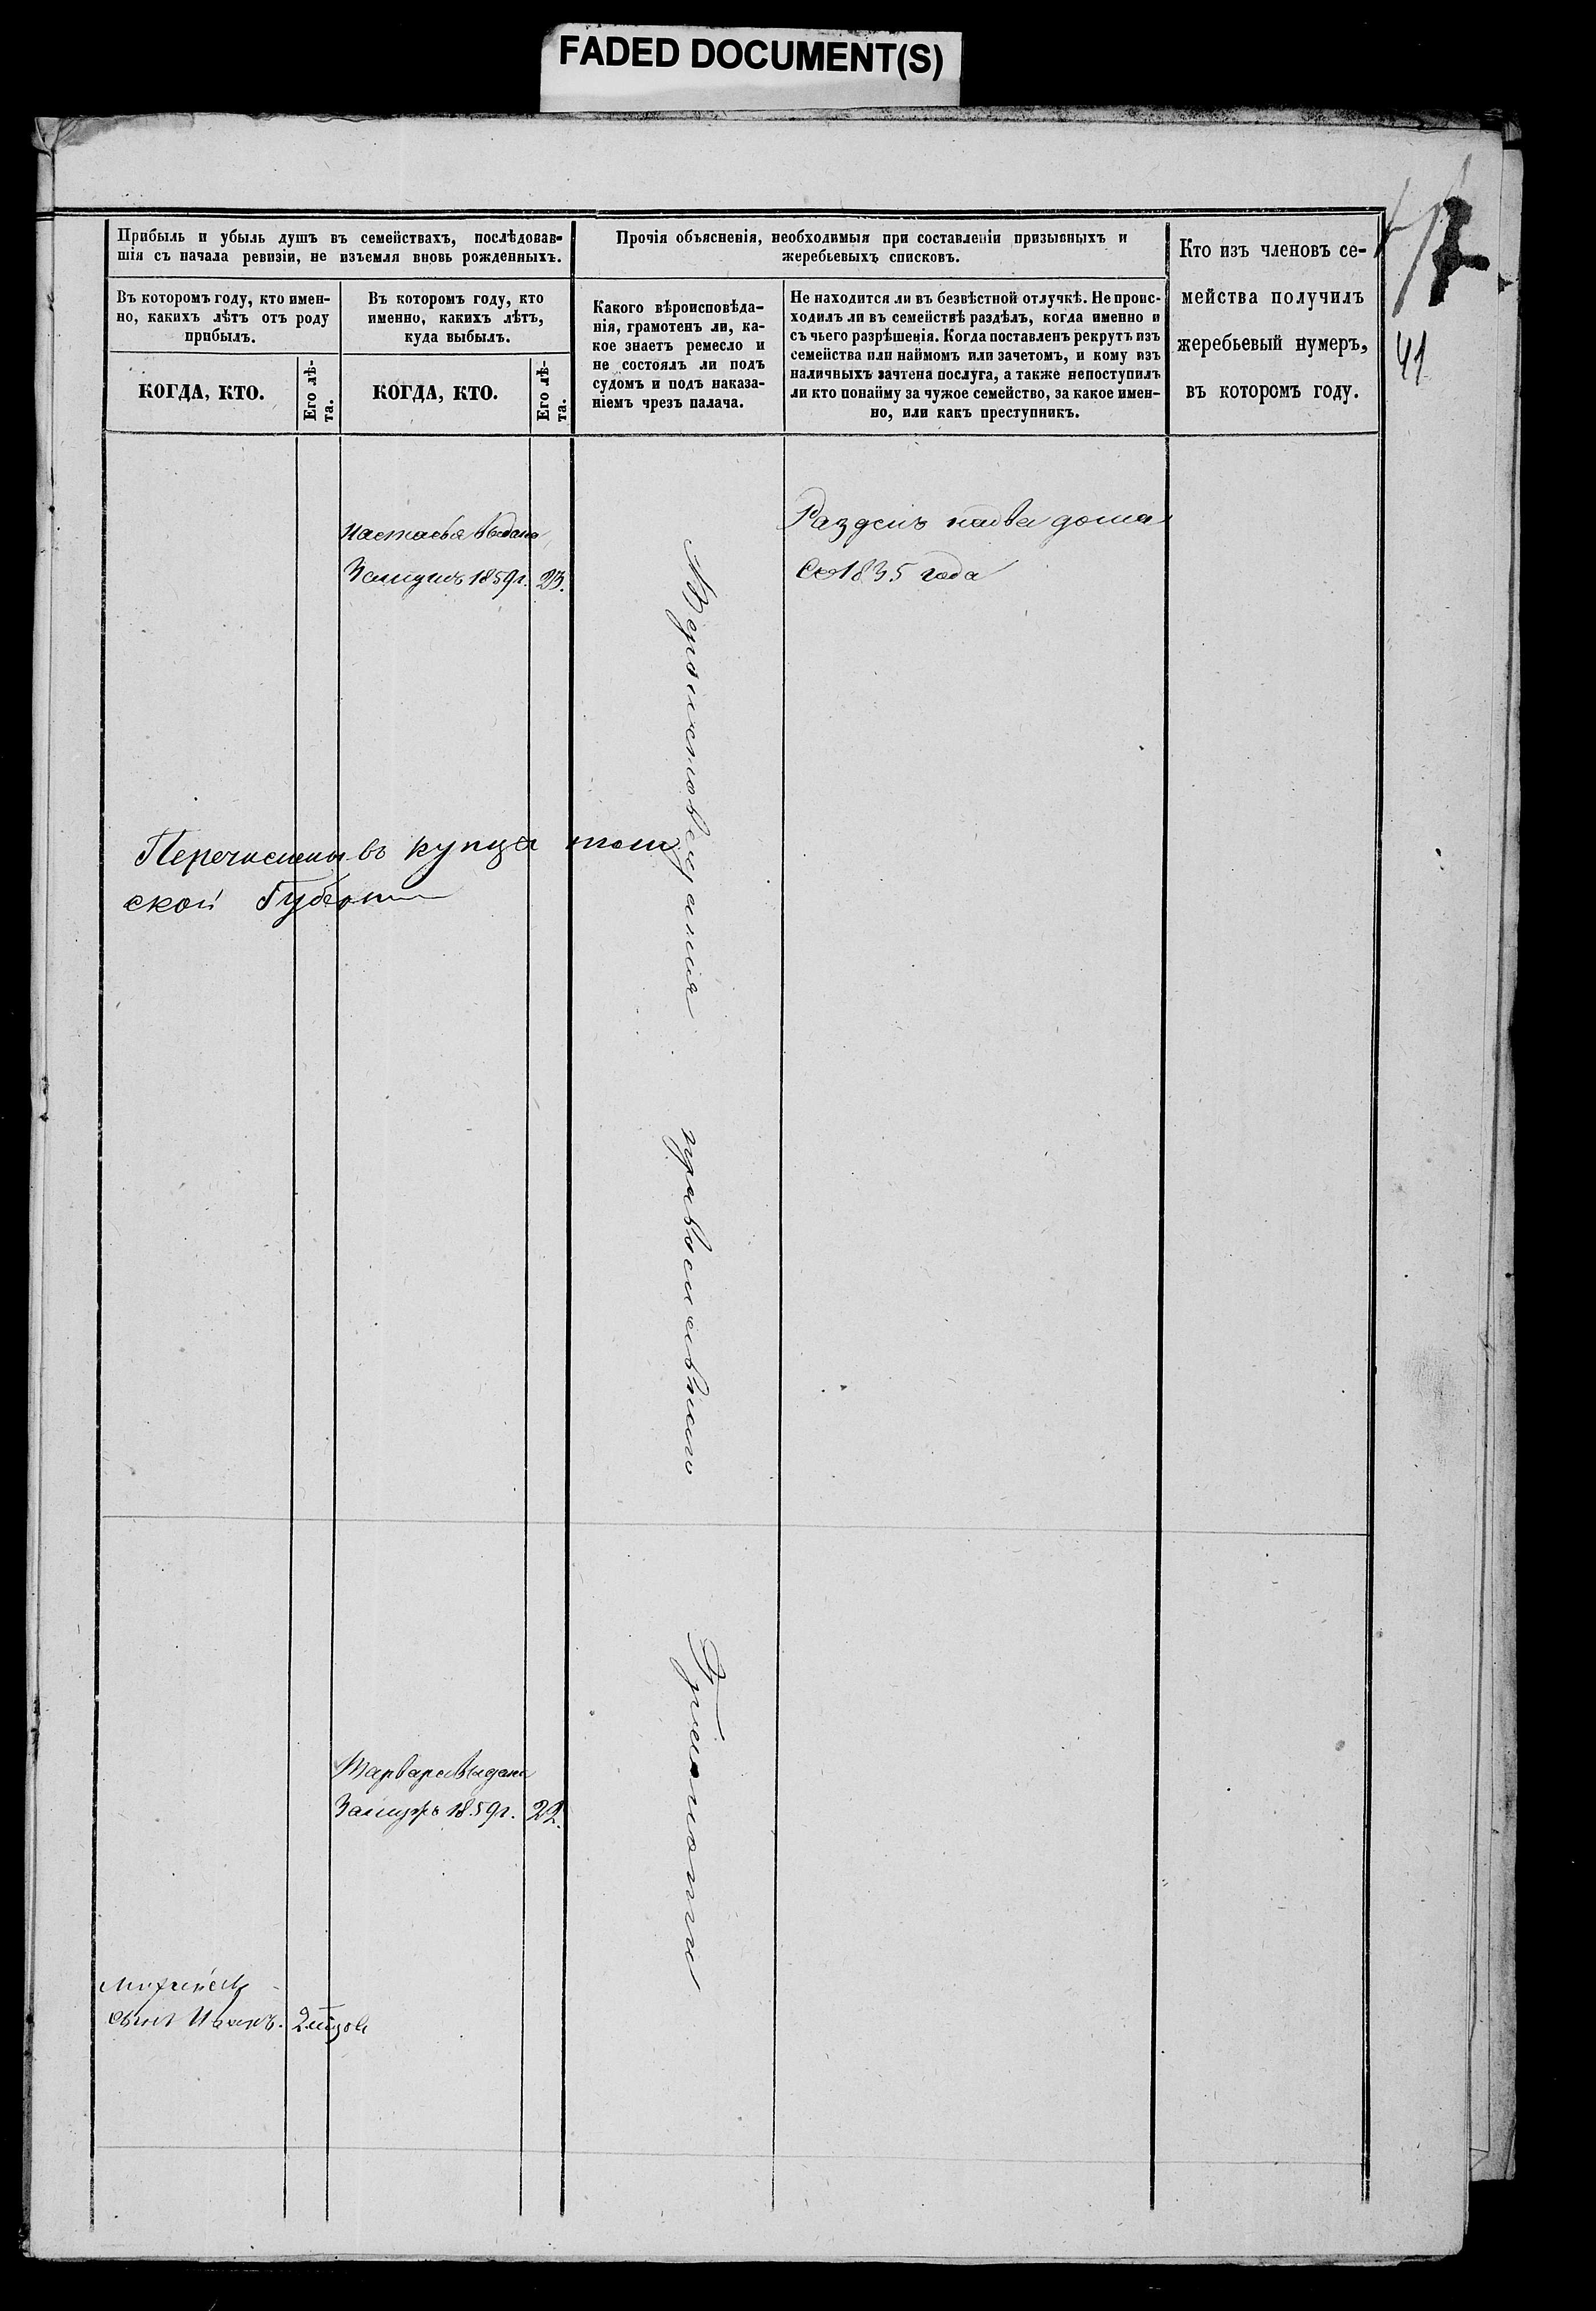 FADED DOCUMENT(S)
Прибыль и убыль душъ въ семействахъ, послѣдовав-
шія съ начала ревизіи, не изъемля вновь рожденныхъ.
Въ которомъ году, кто имен-
но, какихъ лѣтъ отъ роду
прибылъ.
КОГДА, КТО.
Его лѣ-
та.
Въ которомъ году, кто
именно, какихъ лѣтъ,
куда выбылъ.
КОГДА, КТО.
Его лѣ-
та.
Прочія объясненія, необходимыя при составленіи призывныхъ и
жеребьевыхъ списковъ.
Какого вѣроисповѣда-
нія, грамотенъ ли, ка-
кое знаетъ ремесло и
не состоялъ ли подъ
судомъ и подъ наказа-
ніемъ чрезъ палача.
Не находится ли въ безвѣстной отлучкѣ. Не проис-
ходилъ ли въ семействѣ раздѣлъ, когда именно и
съ чьего разрѣшенія. Когда поставленъ рекрутъ изъ
семейства или наймомъ или зачетомъ, и кому изъ
наличныхъ зачтена послуга, а также непоступилъ
ли кто понайму за чужое семейство, за какое имен-
но, или какъ преступникъ.
Кто изъ членовъ се-
мейства получилъ
жеребьевый нумеръ,
въ которомъ году.
41
Настасья выдана
Замужъ 1859г. 23.
Раздѣлъ на два дома
Со 1835 года
Перечислены въ купцы том
ской Губерніи
Вероисповеданія
православнаго
Марвара выдана
Замужъ 1859г. 22.
сынъ Иванъ.